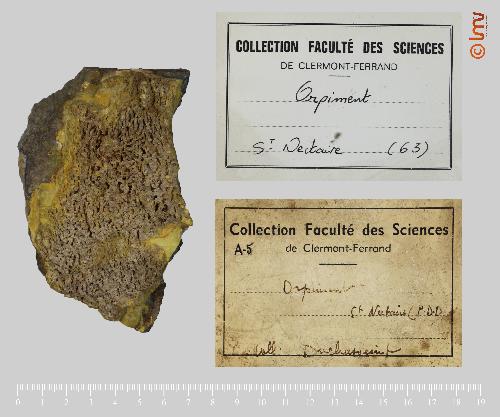 COLLECTION FACULTÉ DES SCIENCES
DE CLERMONT-FERRAND
Orpiment
St Nectaire (63)
Collection Faculté des Sciences
A-5
de Clermont-Ferrand
Orpiment
St Nectaire (P.D.D)
Coll
0 1 2 3 4 5 6 7 8 9 10 11 12 13 14 15 16 17 18 19
© lmv